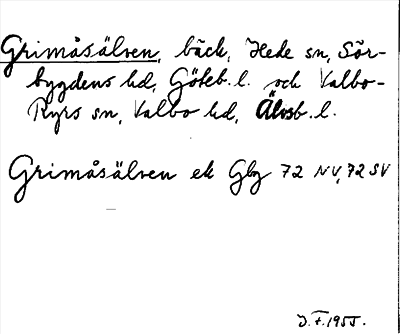 Grimåsälven, bäck, Hede sn, Sör-
bygdens hd, Göteb. l. och Valbo-
Ryrs sn, Valbo hd, Älvsb. l.
Grimåsälven ek Gbg 72 NV, 72 SV
J.F. 1955.